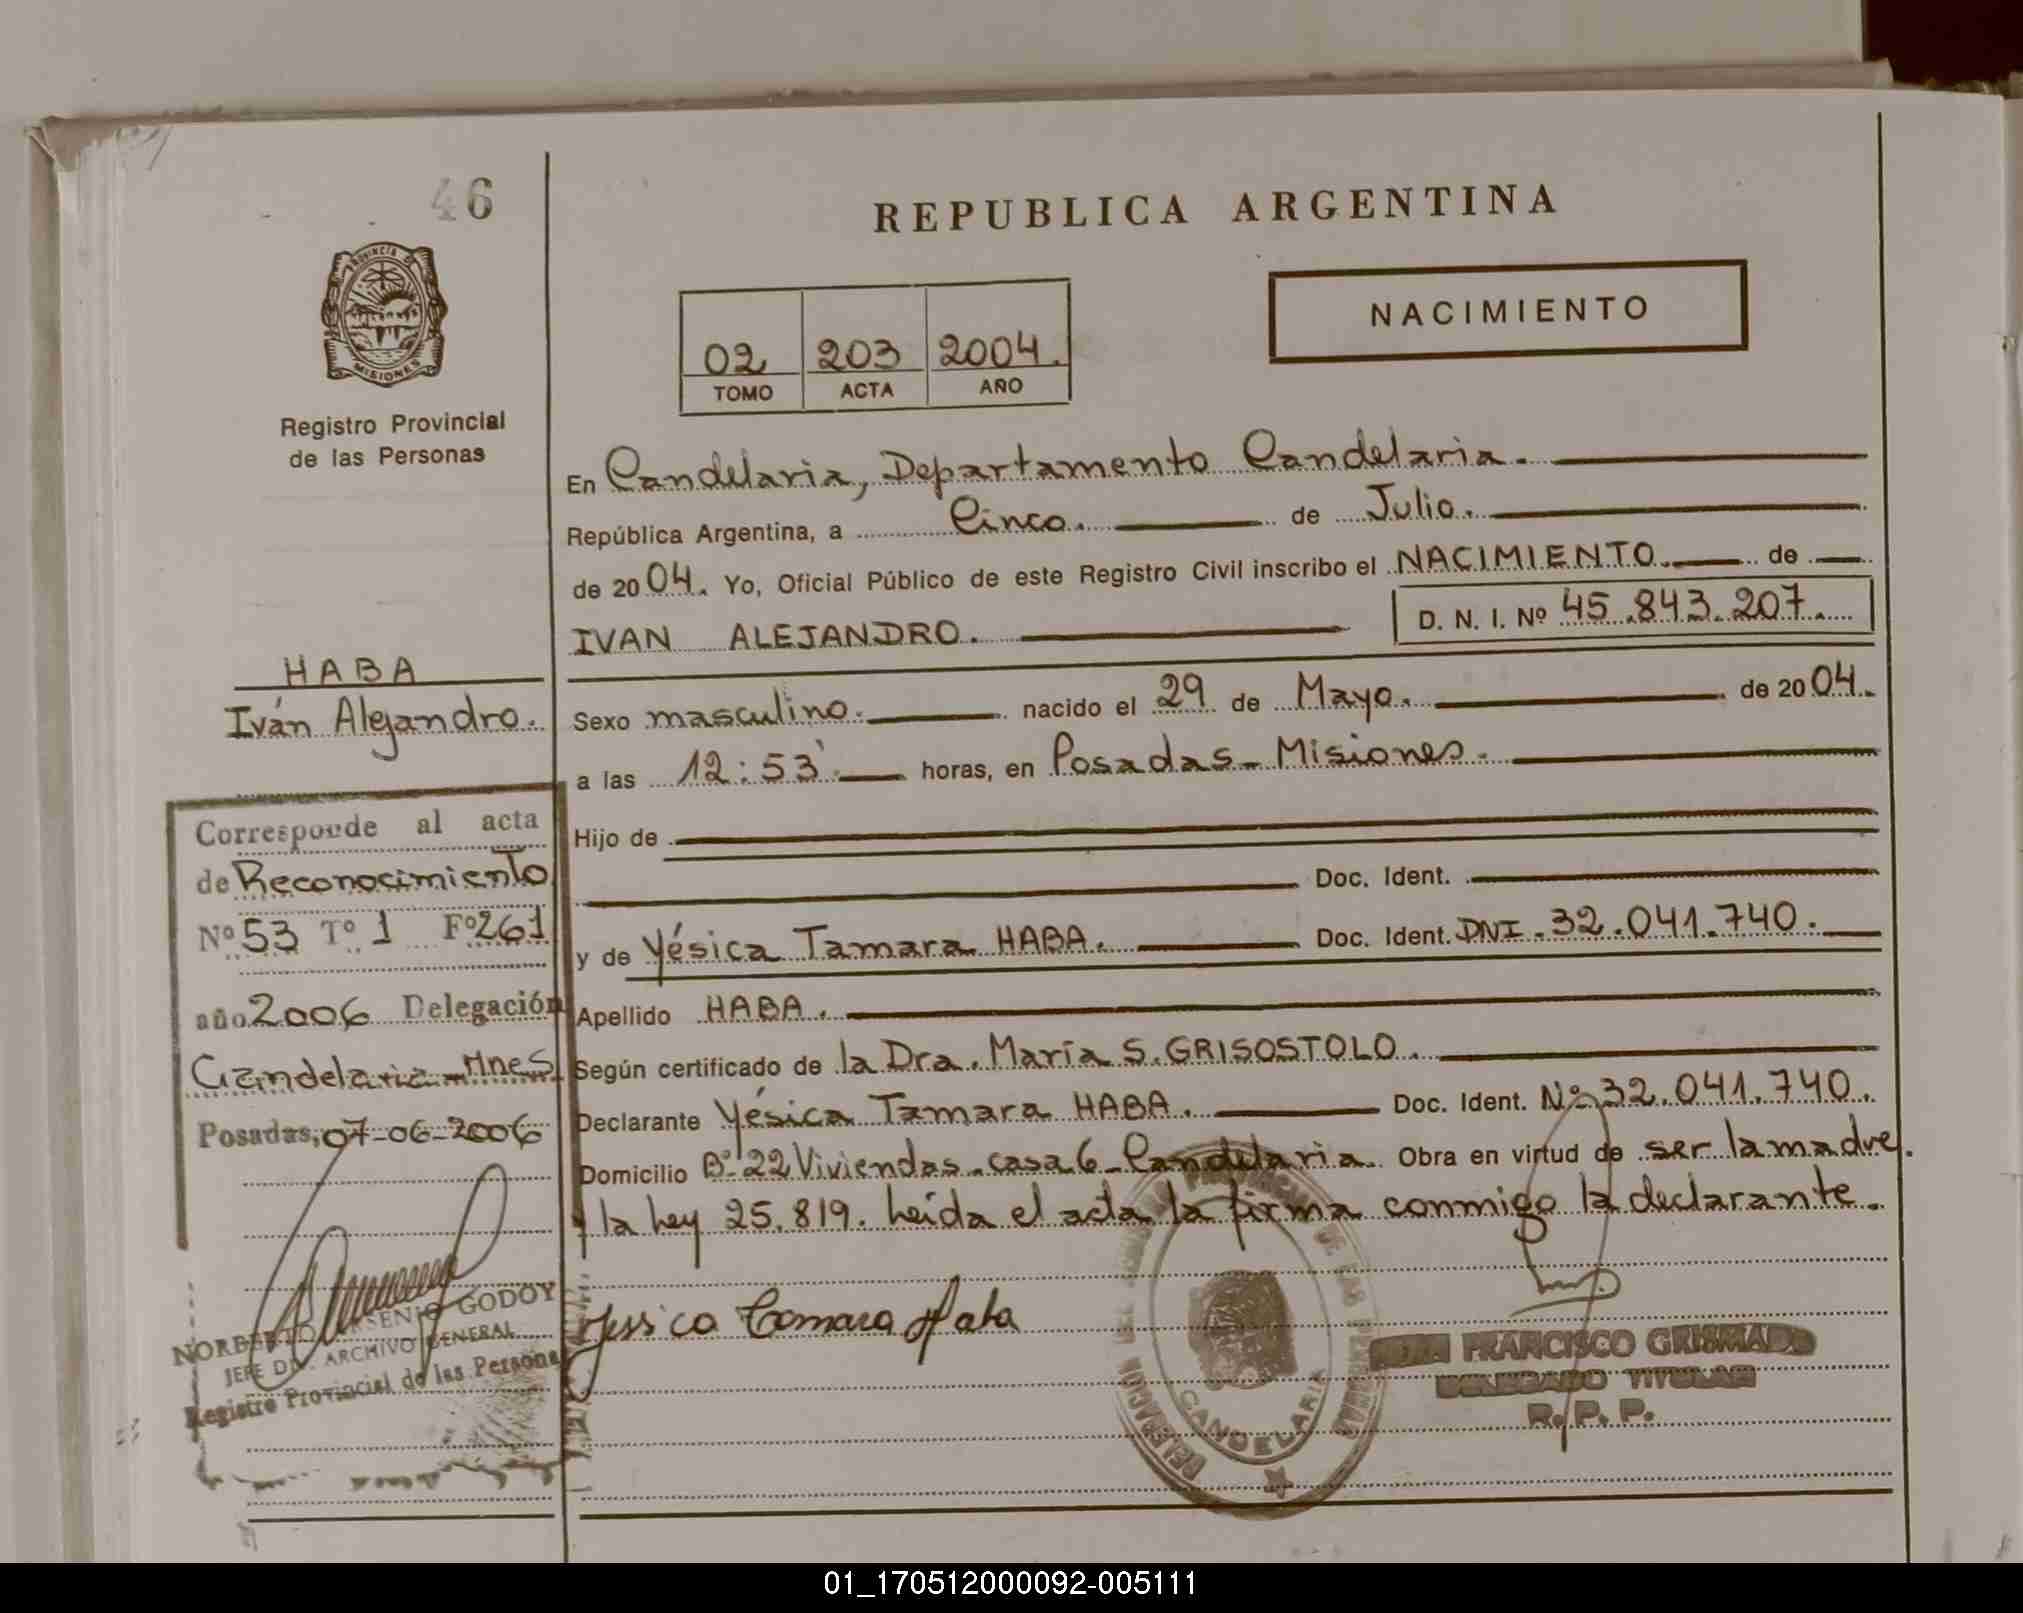 46
REPUBLICA ARGENTINA
PROVINCIA DE
MISIONES
Registro Provincial
de las Personas
02 203 2004.
TOMO ACTA AÑO
NACIMIENTO
En Candelaria, Departamento Candelaria.
República Argentina, a Cinco. de Julio.
de 2004. Yo, Oficial Público de este Registro Civil inscribo el NACIMIENTO. de
IVAN ALEJANDRO. D. N. I. Nº 45.843.207.
HABA
Iván Alejandro.
Sexo masculino. nacido el 29 de Mayo. de 2004.
a las 12:53' horas, en Posadas - Misiones.
Hijo de
Doc. Ident.
y de Yésica Tamara HABA. Doc. Ident. DNI. 32.041.740.
Apellido HABA.
Según certificado de la Dra. María S. GRISOSTOLO.
Declarante Yésica Tamara HABA. Doc. Ident. Nº 32.041.740.
Domicilio Bº 22 Viviendas - casa 6 - Candelaria. Obra en virtud de ser la madre.
y la ley 25.819. Leída el acta la firma conmigo la declarante.
Corresponde al acta
de Reconocimiento
Nº 53 Tº 1 Fº 261
año 2006 Delegación
Candelaria - Mnes
Posadas, 07-06-2006
NORBERTO ARSENIO GODOY
JEFE DE ARCHIVO GENERAL
Registro Provincial de las Personas
Yessica Tamara Haba
CANDELARIA
FRANCISCO GRISMADO
DELEGADO TITULAR
R. P. P.
01_170512000092-005111